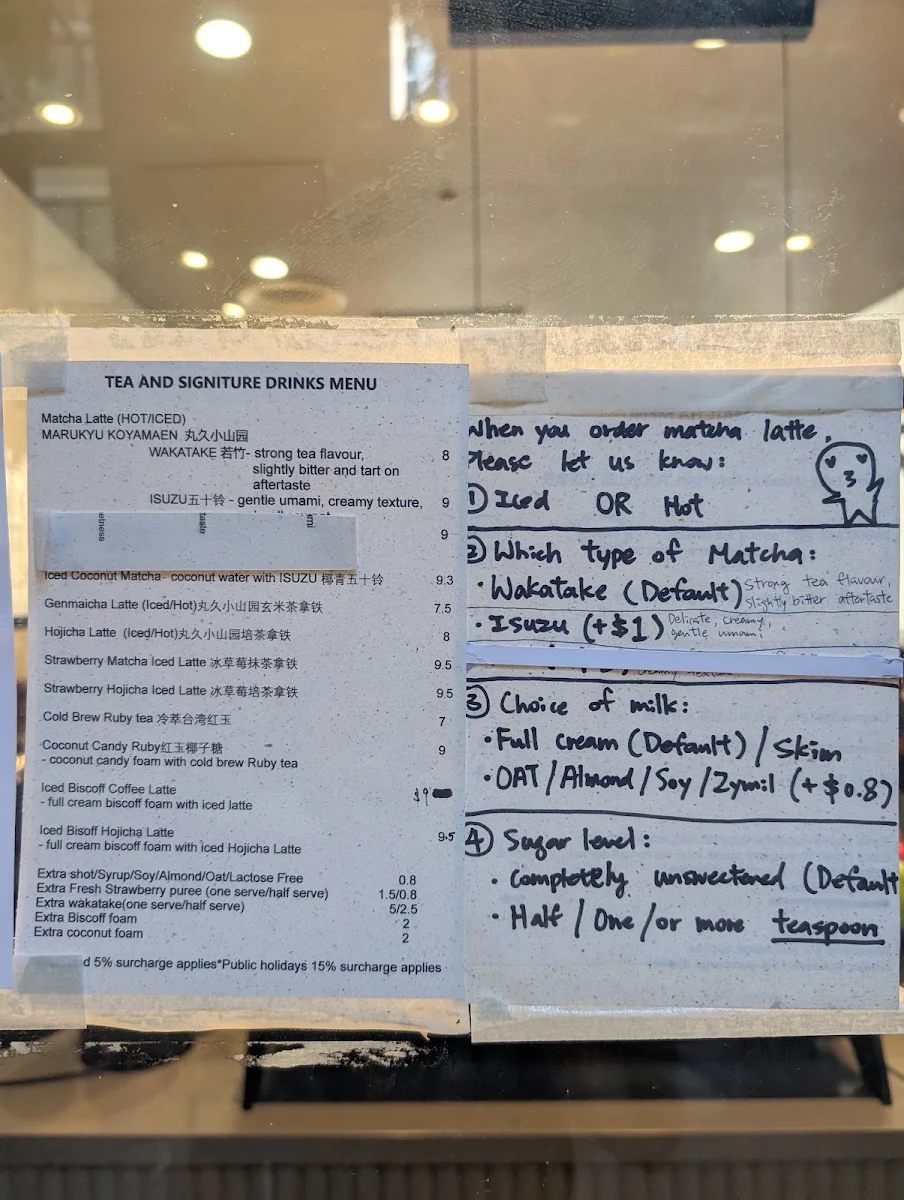 TEA AND SIGNITURE DRINKS MENU
Matcha Latte (HOT/ICED)
MARUKYU KOYAMAEN 丸久小山园
WAKATAKE 若竹- strong tea flavour, 8
slightly bitter and tart on
aftertaste
ISUZU五十铃 - gentle umami, creamy texture, 9
9
Iced Coconut Matcha- coconut water with ISUZU 椰青五十铃 9.3
Genmaicha Latte (Iced/Hot)丸久小山园玄米茶拿铁 7.5
Hojicha Latte (Iced/Hot)丸久小山园培茶拿铁 8
Strawberry Matcha Iced Latte 冰草莓抹茶拿铁 9.5
Strawberry Hojicha Iced Latte 冰草莓培茶拿铁 9.5
Cold Brew Ruby tea 冷萃台湾红玉 7
Coconut Candy Ruby红玉椰子糖 9
- coconut candy foam with cold brew Ruby tea
Iced Biscoff Coffee Latte $9
- full cream biscoff foam with iced latte
Iced Bisoff Hojicha Latte 9.5
- full cream biscoff foam with iced Hojicha Latte
Extra shot/Syrup/Soy/Almond/Oat/Lactose Free 0.8
Extra Fresh Strawberry puree (one serve/half serve) 1.5/0.8
Extra wakatake(one serve/half serve) 5/2.5
Extra Biscoff foam 2
Extra coconut foam 2
d 5% surcharge applies*Public holidays 15% surcharge applies
When you order matcha latte,
Please let us know:
① Iced OR Hot
② Which type of Matcha:
• Wakatake (Default) Strong tea flavour,
slightly bitter aftertaste
• Isuzu (+$1) Delicate, creamy,
gentle umami
③ Choice of milk:
• Full cream (Default) / Skim
• OAT / Almond / Soy / Zymil (+$0.8)
④ Sugar level:
• Completely unsweetened (Default
• Half / One / or more teaspoon